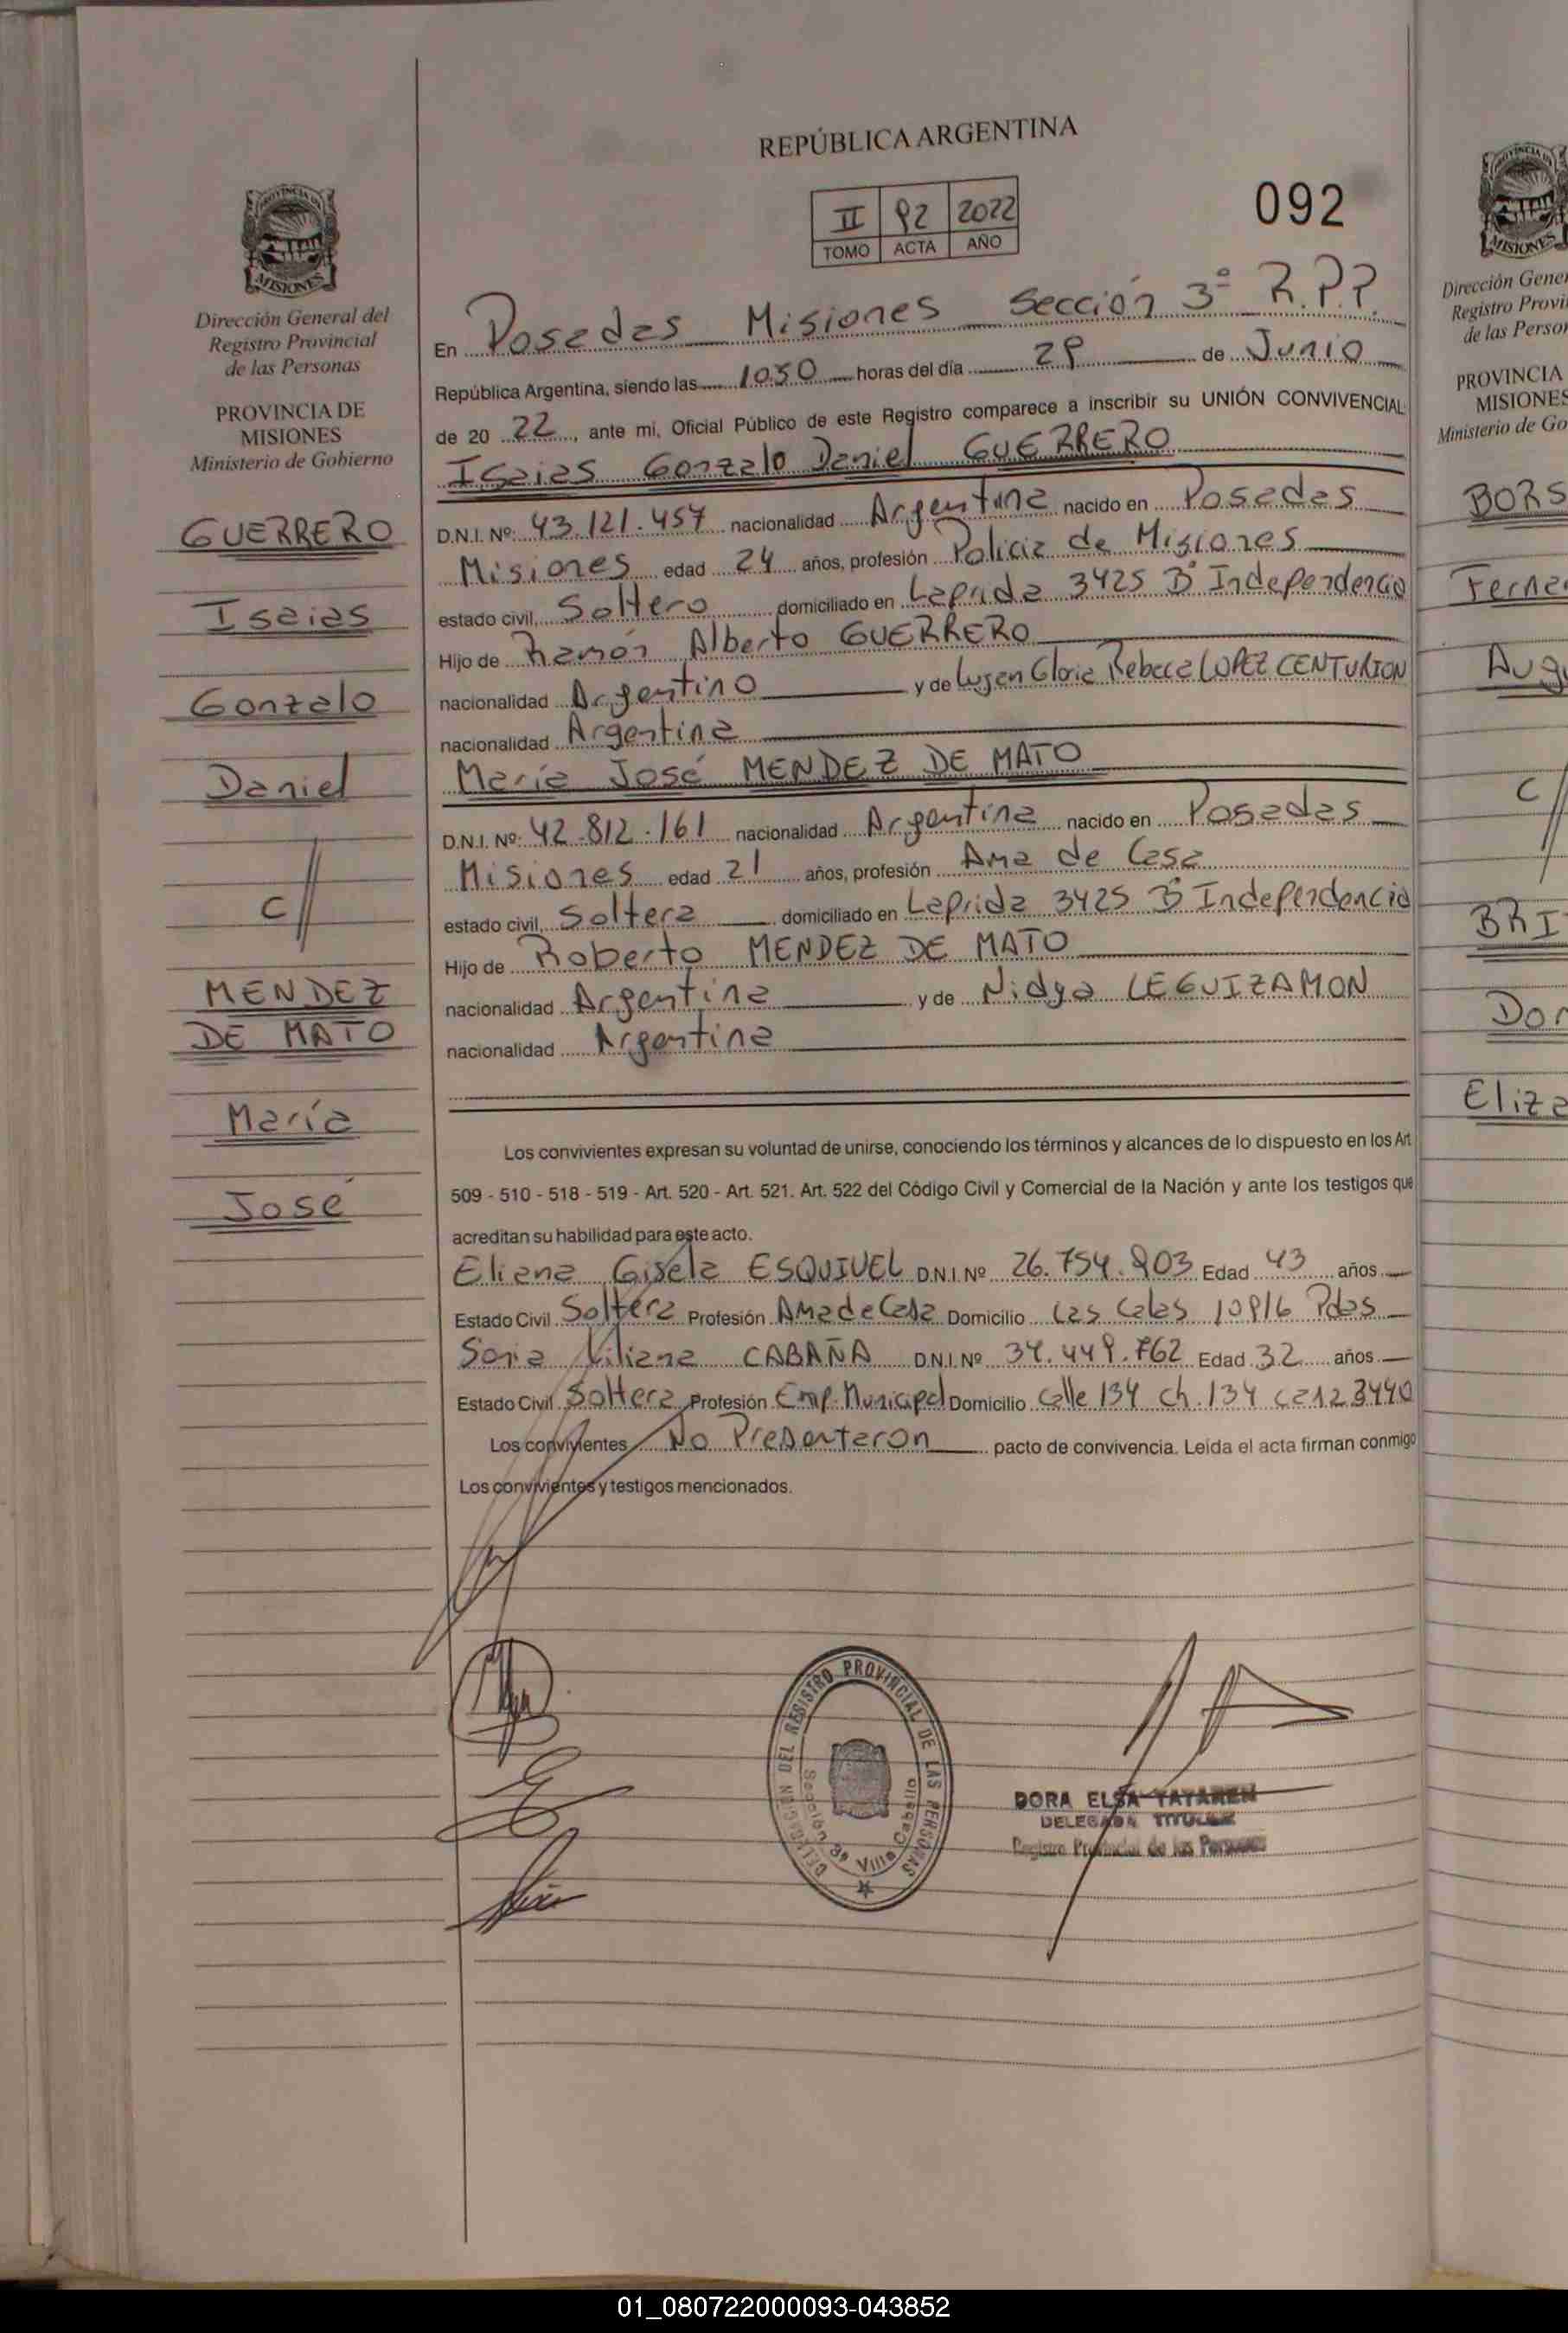 REPÚBLICA ARGENTINA
II 92 2022
TOMO ACTA AÑO
092
Dirección General del
Registro Provincial
de las Personas
PROVINCIA DE
MISIONES
Ministerio de Gobierno
GUERRERO
Isaias
Gonzalo
Daniel
C//
MENDEZ
DE MATO
María
José
En Posadas Misiones Sección 3º R.P.P.
República Argentina, siendo las 1030 horas del día 29 de Junio
de 20 22, ante mi, Oficial Público de este Registro comparece a inscribir su UNIÓN CONVIVENCIAL:
Isaias Gonzalo Daniel GUERRERO
D.N.I. Nº: 43.121.457 nacionalidad Argentina nacido en Posadas
Misiones edad 24 años, profesión Policia de Misiones
estado civil, Soltero domiciliado en Laprida 3425 Bº Independencia
Hijo de Ramón Alberto GUERRERO
nacionalidad Argentino y de Gloria Rebeca LOPEZ CENTURION
nacionalidad Argentina
María José MENDEZ DE MATO
D.N.I. Nº: 42.812.161 nacionalidad Argentina nacido en Posadas
Misiones edad 21 años, profesión Ama de Casa
estado civil, Soltera domiciliado en Laprida 3425 Bº Independencia
Hijo de Roberto MENDEZ DE MATO
nacionalidad Argentina y de Nidya LEGUIZAMON
nacionalidad Argentina
Los convivientes expresan su voluntad de unirse, conociendo los términos y alcances de lo dispuesto en los Art
509 - 510 - 518 - 519 - Art. 520 - Art. 521. Art. 522 del Código Civil y Comercial de la Nación y ante los testigos que
acreditan su habilidad para este acto.
Eliana Gisela ESQUIVEL D.N.I. Nº 26.754.903 Edad 43 años
Estado Civil Soltera Profesión Ama de Casa Domicilio Las Calas 10916 Pdas
Sonia Liliana CABAÑA D.N.I. Nº 34.449.762 Edad 32 años
Estado Civil Soltera Profesión Emp. Municipal Domicilio Calle 134 ch. 134 ca12 3440
Los convivientes No Presentaron pacto de convivencia. Leida el acta firman conmigo
Los convivientes y testigos mencionados.
DELEGACIÓN DEL REGISTRO PROVINCIAL DE LAS PERSONAS
Sección 3ª Villa Cabello
DORA ELSA TATAREN
DELEGADA TITULAR
Registro Provincial de las Personas
Dirección Gener
Registro Provin
de las Person
PROVINCIA
MISIONES
Ministerio de Go
BORS
Ferna
Aug
C//
BRI
Dor
Eliza
01_080722000093-043852